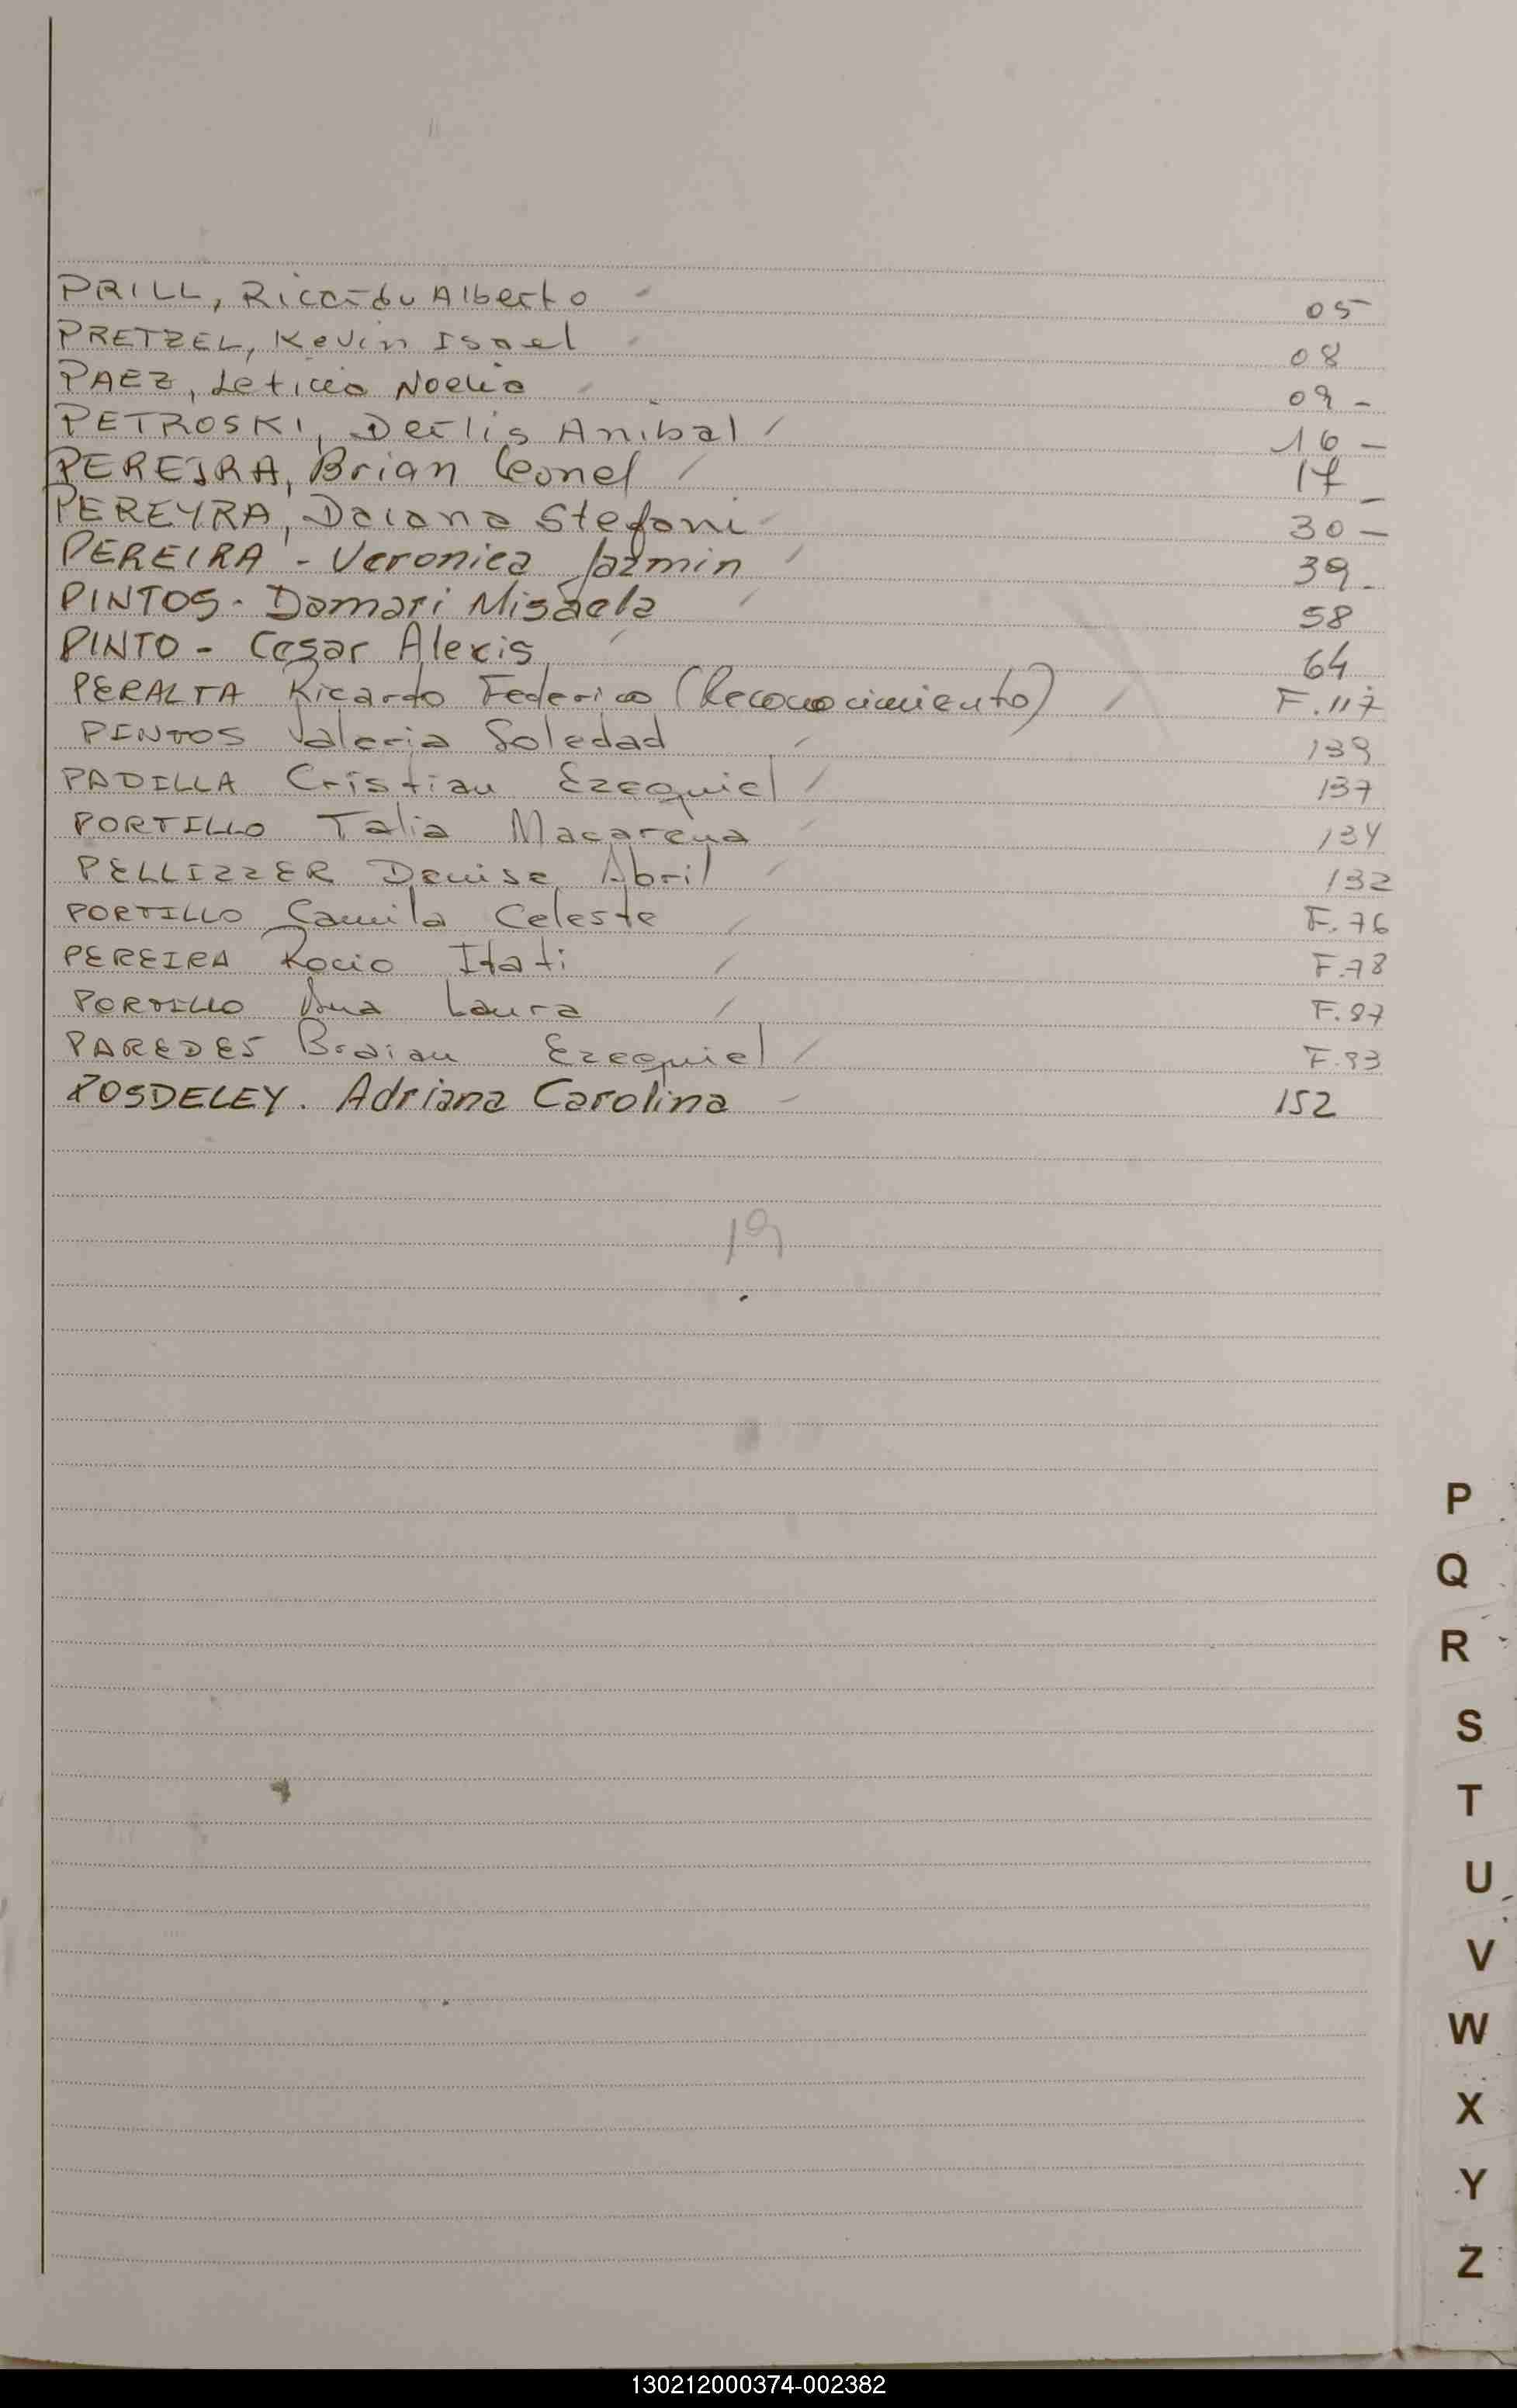 PRILL, Ricardo Alberto - 05
PRETZEL, Kevin Isael - 08
PAEZ, Leticia Noelia - 09 -
PETROSKI, Derlis Anibal / 16 -
PEREIRA, Brian Leonel / 17 -
PEREYRA, Daiana Stefani - 30 -
PEREIRA - Veronica Jazmin / 39 -
PINTOS - Damari Misaela / 58
PINTO - Cesar Alexis / 64
PERALTA Ricardo Federico (Reconocimiento) / F. 117
PINTOS Valeria Soledad / 139
PADILLA Cristian Ezequiel / 137
PORTILLO Talia Macarena / 134
PELLIZZER Denise Abril / 132
PORTILLO Camila Celeste / F. 76
PEREIRA Rocio Itati / F. 78
PORTILLO Ana Laura / F. 87
PAREDES Braian Ezequiel / F. 93
POSDELEY. Adriana Carolina - 152
19
P
Q
R
S
T
U
V
W
X
Y
Z
130212000374-002382